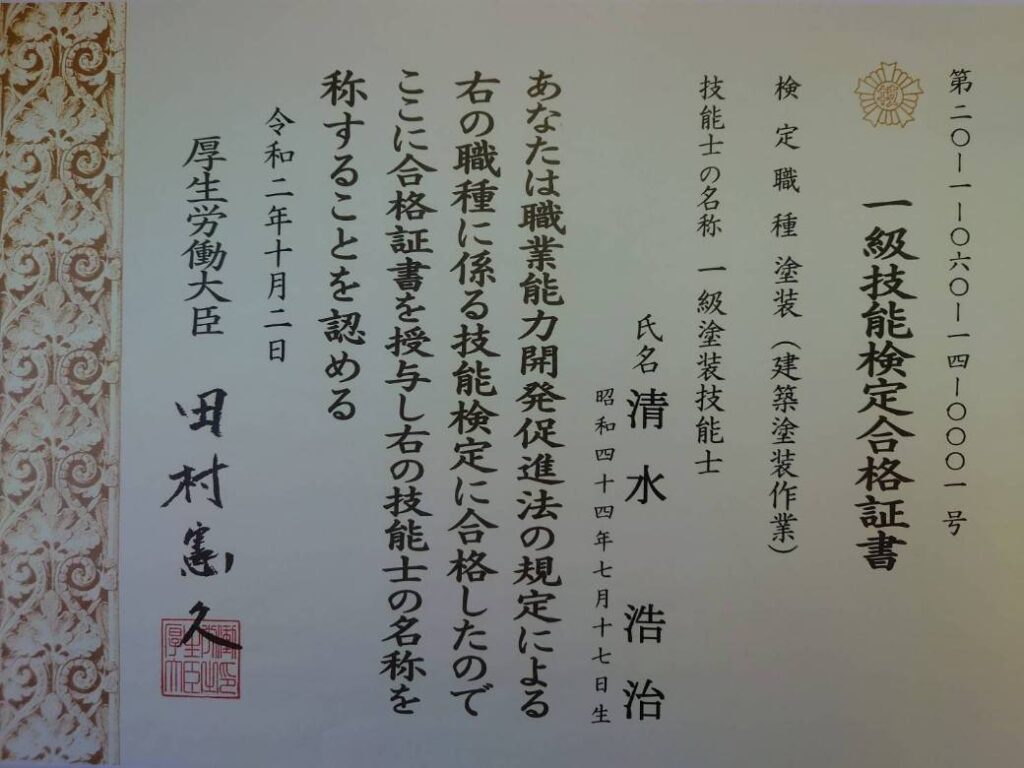 第二〇ー一ー〇六〇ー一四ー〇〇〇一号
一級技能検定合格証書
検定職種 塗装(建築塗装作業)
技能士の名称 一級塗装技能士
氏名 清水 浩治
昭和四十四年七月十七日生
あなたは職業能力開発促進法の規定による
右の職種に係る技能検定に合格したので
ここに合格証書を授与し右の技能士の名称を
称することを認める
令和二年十月二日
厚生労働大臣 田村憲久